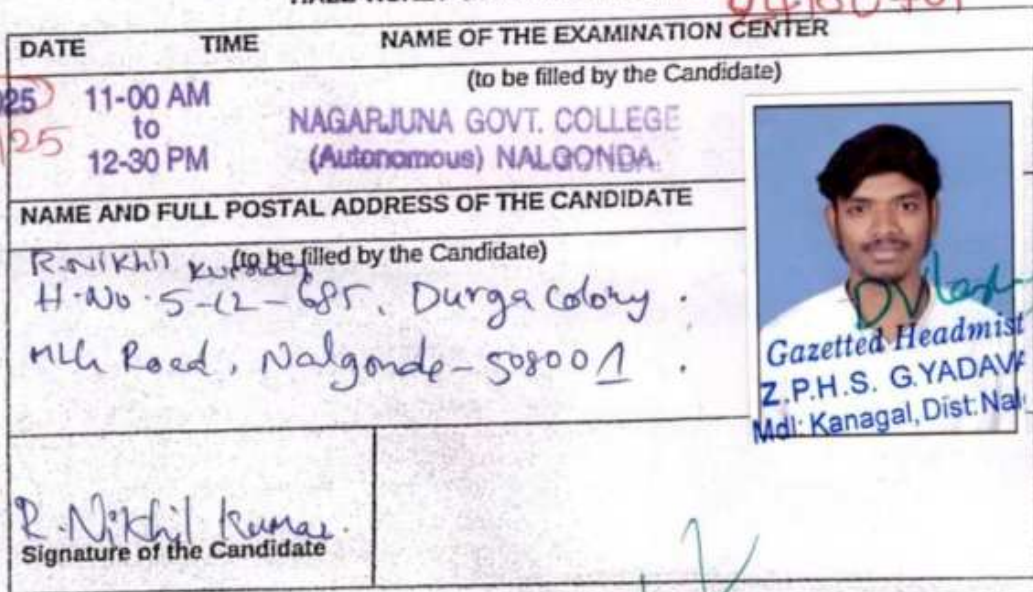 DATE TIME NAME OF THE EXAMINATION CENTER
(to be filled by the Candidate)
25 11-00 AM
to
25 12-30 PM
NAGARJUNA GOVT. COLLEGE
(Autonomous) NALGONDA.
NAME AND FULL POSTAL ADDRESS OF THE CANDIDATE
(to be filled by the Candidate)
R. Nikhil Kumar
H.No. 5-12-685, Durga Colony.
Road, Nalgonda-508001.
Gazetted Headmist
Z.P.H.S. G.YADAVA
Mdl: Kanagal, Dist: Nal
R. Nikhil Kumar.
Signature of the Candidate